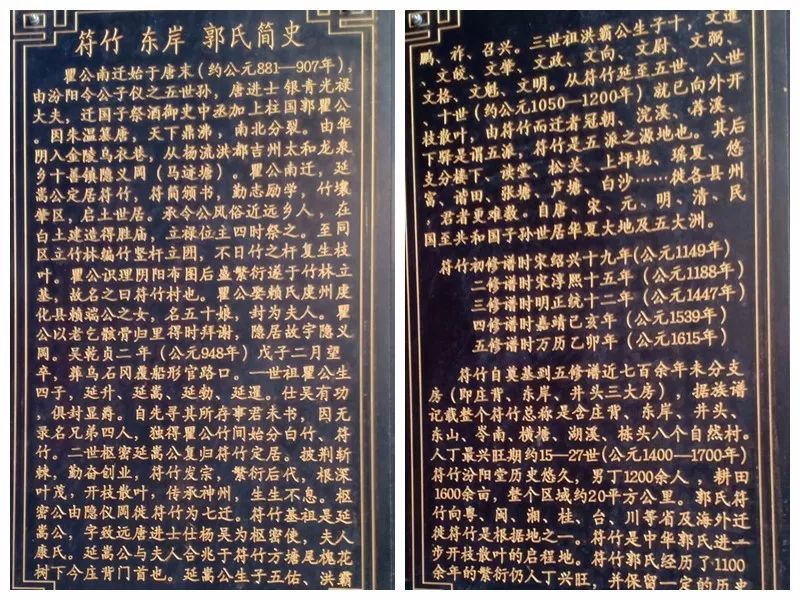 符竹 东岸 郭氏简史
瞿公南迁始于唐末(约公元881—907年),
由汾阳令公子仪之五世孙,唐进士 银青光禄
大夫,迁国子祭酒御史中丞加上柱国郭瞿公
。因朱温篡唐,天下鼎沸,南北分裂。由华
阴入金陵乌衣巷,从杨流洪都吉州太和龙泉
乡十善镇隐义网(马迹塘)。瞿公南迁,延
嵩公定居符竹,符简颁书,勤志励学,竹壤
肇区,启土世居。承令公风俗近远乡人,在
白土建造得胜庙,立禄位主四时祭之。至同
区立竹林编竹竖杆立团,不日竹之杆复生枝
叶。瞿公识理阴阳布图后盛繁衍遂于竹林立
基,故名之曰符竹村也。瞿公娶赖氏虔州虔
化县赖端公之女,名五十娘,封为夫人。瞿
公以老乞骸骨归里得时拜谢,隐居故宇隐义
网。吴乾贞二年(公元948年)戊子二月望
卒,葬乌石冈覆船形官路口。一世祖瞿公生
四子,延升、延嵩、延勃、延暹。仕吴有功
,俱封显爵。自先寻其所存事君未书,因无
录名兄弟四人,独得瞿公竹间始分白竹、符
竹。二世枢密延嵩公复归符竹定居。披荆斩
棘,勤奋创业,符竹发宗,繁衍后代,根深
叶茂,开枝散叶,传承神州,生生不息。枢
密公由隐仪网徙符竹为七迁。符竹基祖是延
嵩公,字致远唐进士仕杨吴为枢密使,夫人
康氏。延嵩公与夫人合兆于符竹方塘尾槐花
树下今庄背门首也。延嵩公生子五佑、洪霸
鹏、祚、召兴。三世祖洪霸公生子十,文進
、文皎、文肇、文政、文向、文尉、文弼、
文格、文魁、文明。从符竹延至五世、八世
、十世(约公元1050—1200年)就已向外开
枝散叶,由符竹而迁者冠朝、浣溪、暮溪、
下驿是谓五派,符竹是五派之源地也。其后
支分楼下、读堂、松关、上坪垅、瑶夏、悠
富、莆田、张塘、芦塘、白沙……徙各县州
,君者更难数。自唐、宋、元、明、清、民
国至共和国子孙世居华夏大地及五大洲。
符竹初修谱时宋绍兴十九年(公元1149年)
二修谱时宋淳熙十五年(公元1188年)
三修谱时明正统十二年(公元1447年)
四修谱时嘉靖己亥年(公元1539年)
五修谱时万历乙卯年(公元1615年)
符竹自奠基到五修谱近七百余年未分支
房(即庄背、东岸、井头三大房),据族谱
记载整个符竹总称是含庄背、东岸、井头、
东山、岺南、横塘、湖溪、栋头八个自然村。
人丁最兴旺期约15—27世(公元1400—1700年)
符竹汾阳堂历史悠久,男丁1200余人,耕田
1600余亩,整个区域约20平方公里。郭氏符
竹向粤、闽、湘、桂、台、川等省及海外迁
徙符竹是根据地之一。符竹是中华郭氏进一
步开枝散叶的启程地。符竹郭氏经历了1100
余年的繁衍仍人丁兴旺,并保留一定的历史